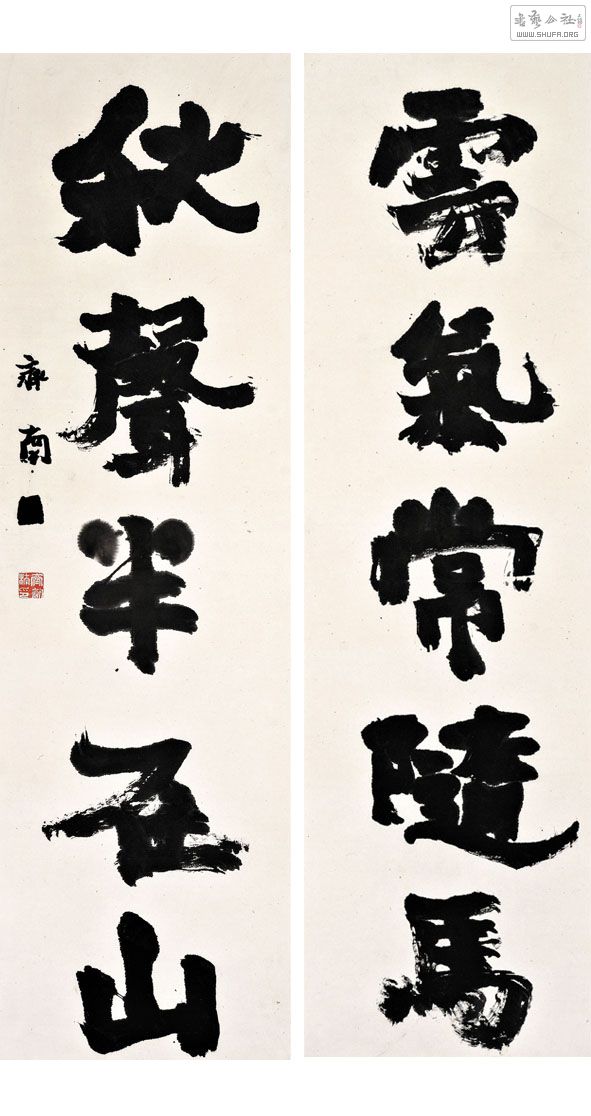 書藝公社
WWW.SHUFA.ORG
雲氣常隨馬
秋聲半在山
齊南